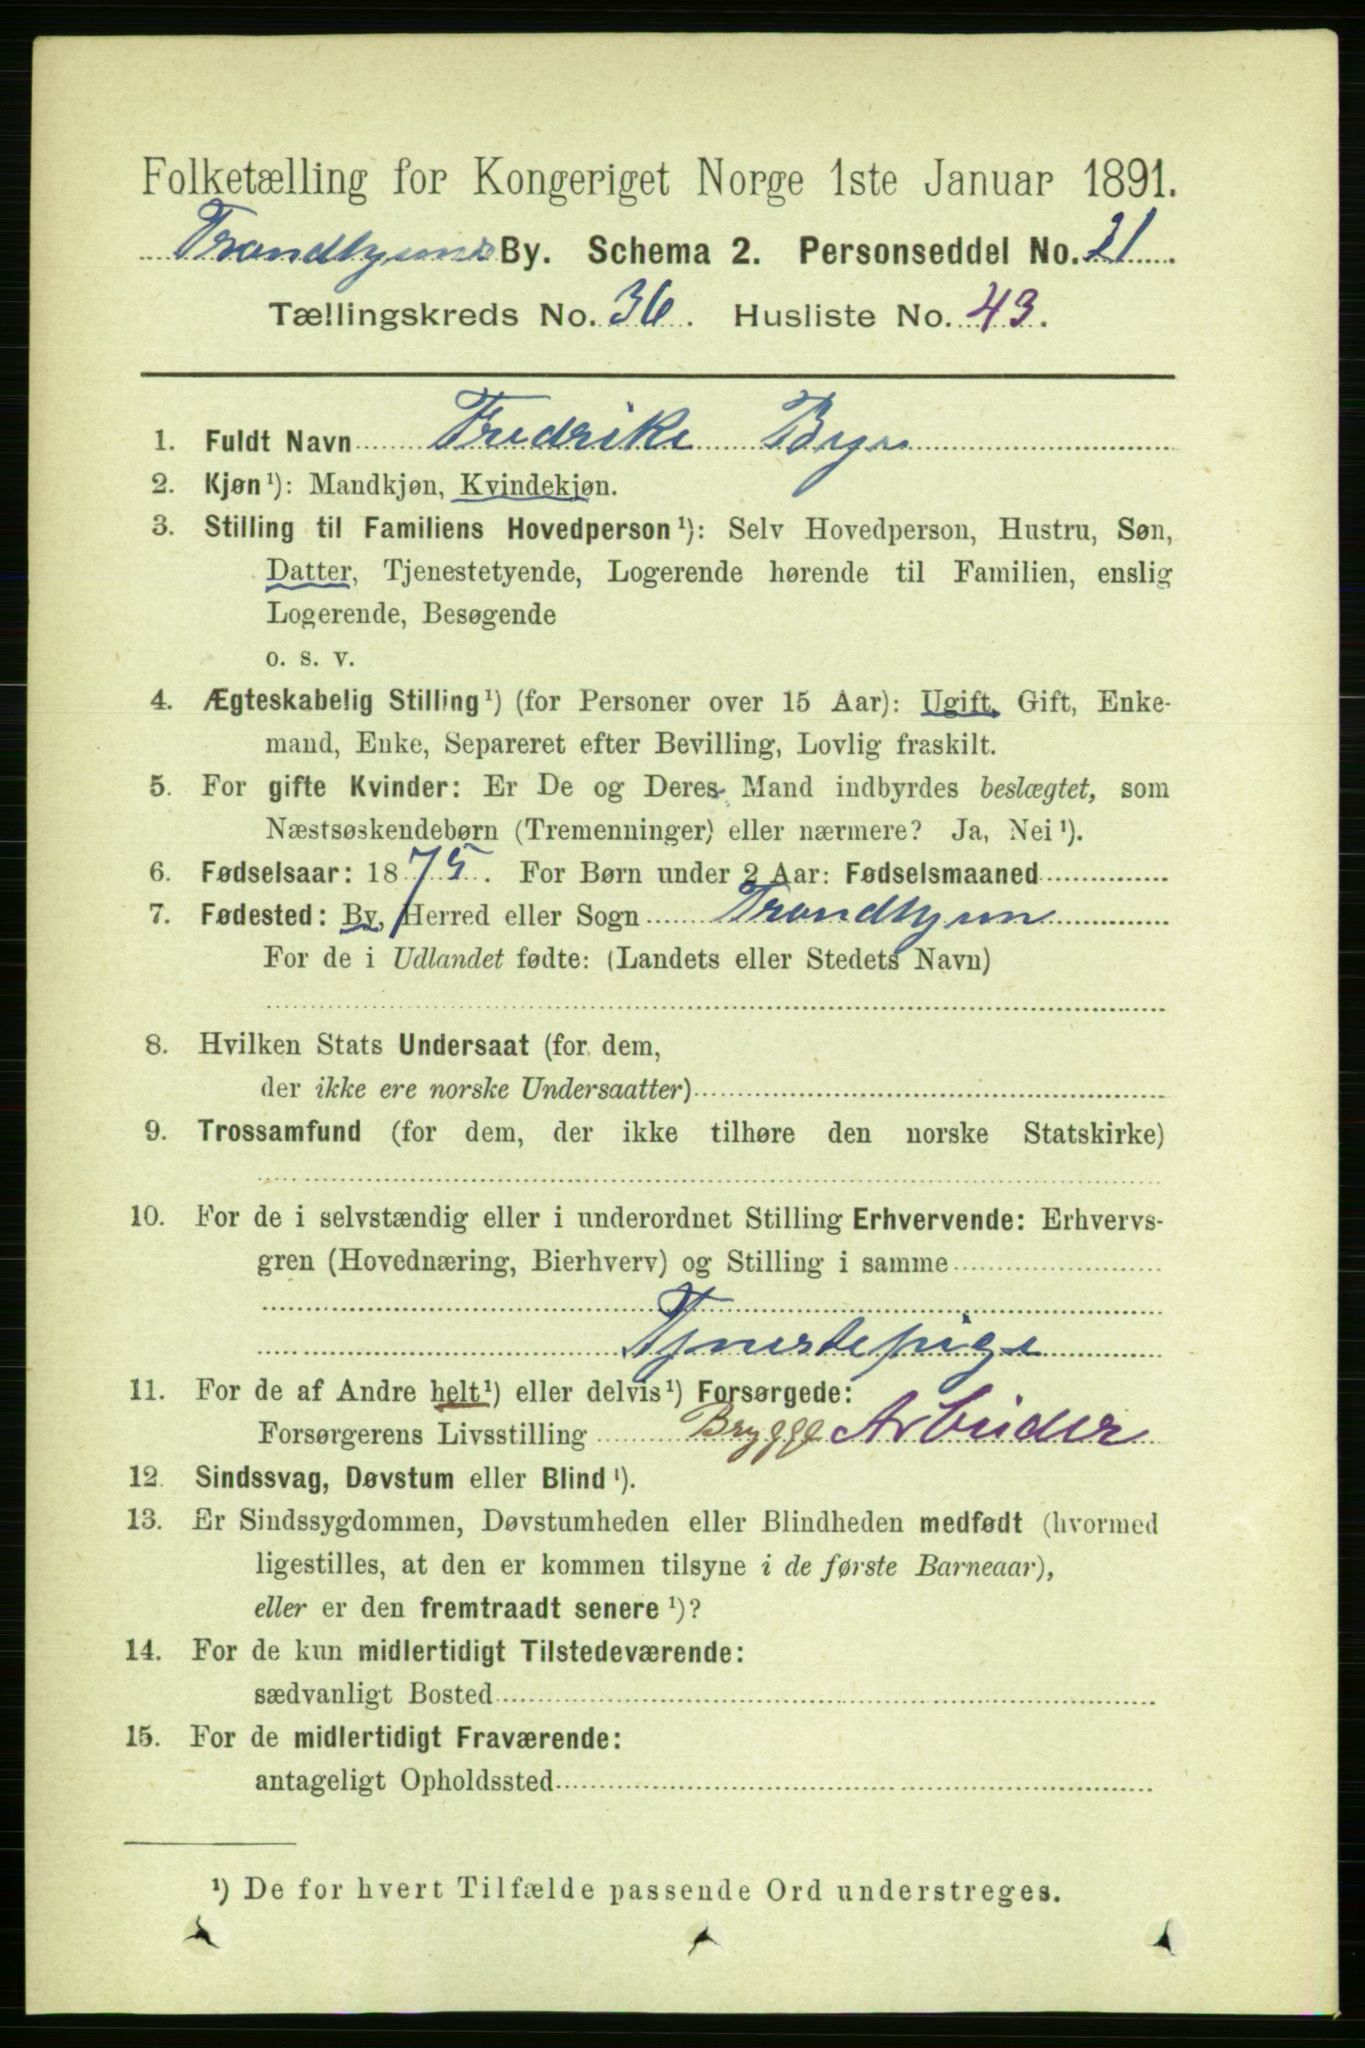 Folketælling for Kongeriget Norge 1ste Januar 1891.
Trondhjems By. Schema 2. Personseddel No. 21.
Tællingskreds No. 36. Husliste No. 43.
1. Fuldt Navn Fredrike
2. Kjøn¹): Mandkjøn, Kvindekjøn.
3. Stilling til Familiens Hovedperson¹): Selv Hovedperson, Hustru, Søn,
Datter, Tjenestetyende, Logerende hørende til Familien, enslig
Logerende, Besøgende
o. s. v.
4. Ægteskabelig Stilling¹) (for Personer over 15 Aar): Ugift, Gift, Enke-
mand, Enke, Separeret efter Bevilling, Lovlig fraskilt.
5. For gifte Kvinder: Er De og Deres Mand indbyrdes beslægtet, som
Næstsøskendebørn (Tremenninger) eller nærmere? Ja, Nei¹).
6. Fødselsaar: 1875. For Børn under 2 Aar: Fødselsmaaned
7. Fødested: By, Herred eller Sogn Trondhjem
For de i Udlandet fødte: (Landets eller Stedets Navn)
8. Hvilken Stats Undersaat (for dem,
der ikke ere norske Undersaatter)
9. Trossamfund (for dem, der ikke tilhøre den norske Statskirke)
10. For de i selvstændig eller i underordnet Stilling Erhvervende: Erhvervs-
gren (Hovednæring, Bierhverv) og Stilling i samme
Tjnestepige
11. For de af Andre helt¹) eller delvis¹) Forsørgede:
Forsørgerens Livsstilling Brygge Arbeider
12. Sindssvag, Døvstum eller Blind¹).
13. Er Sindssygdommen, Døvstumheden eller Blindheden medfødt (hvormed
ligestilles, at den er kommen tilsyne i de første Barneaar),
eller er den fremtraadt senere¹)?
14. For de kun midlertidigt Tilstedeværende:
sædvanligt Bosted
15. For de midlertidigt Fraværende:
antageligt Opholdssted
¹) De for hvert Tilfælde passende Ord understreges.